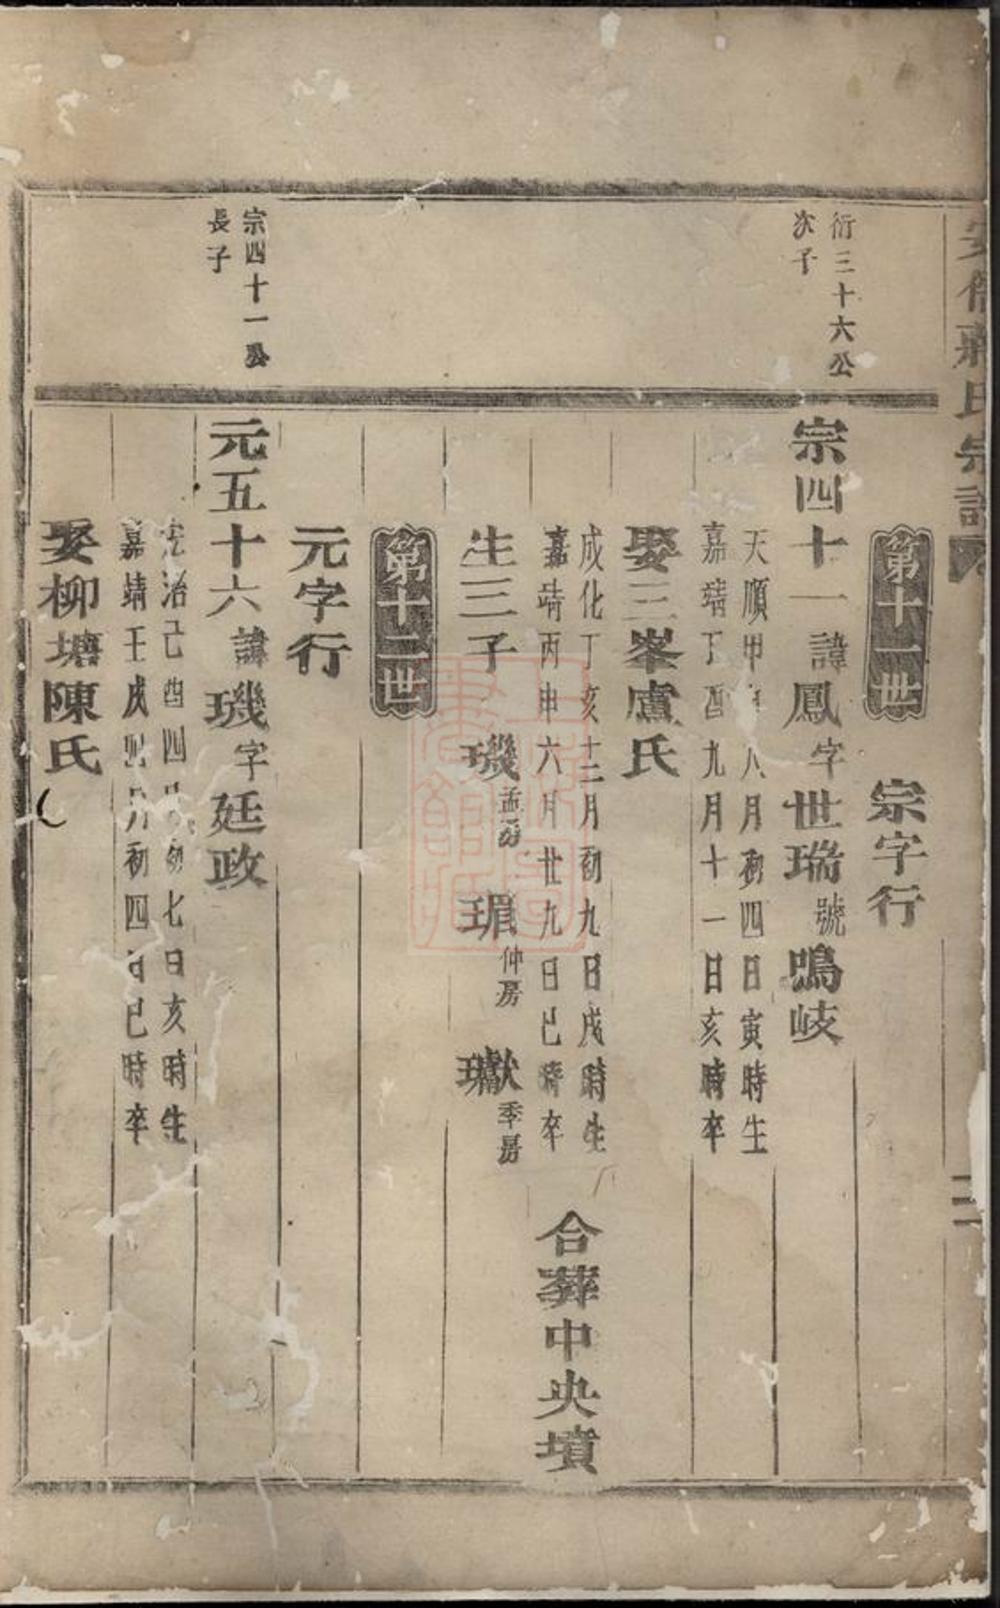 氏宗譜
第十一世 宗字行
衍三十六公
次子
宗四十一諱鳳字世瑞號鳴岐
天順甲申八月初四日寅時生
嘉靖丁酉九月十一日亥時卒
娶三峯盧氏
成化丁亥十二月初九日戌時生
嘉靖丙申六月廿九日巳時卒
合葬中央墳
生三子 璣孟房 瑂仲房 瓛季房
第十二世
元字行
宗四十一公
長子
元五十六諱璣字廷政
治己酉四月初七日亥時生
嘉靖壬戌四月初四日巳時卒
娶柳塘陳氏